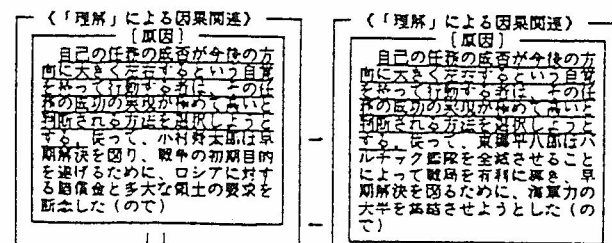 《「理解」による因果関連》
[原因]
自己の任務の成否が今後の方
向に大きく左右するという自覚
をやって行動する者は、その任
務の成功の実現が極めて高いと
判断される方法を選択しようと
する。従って、小村寿太郎は早
期解決を図り、戦争の初期目的
を遂げるために、ロシアに対す
る賠償金と多大な領土の要求を
断念した(ので)
《「理解」による因果関連》
[原因]
自己の任務の成否が今後の方
向に大きく左右するという自覚
をやって行動する者は、その任
務の成功の実現が極めて高いと
判断される方法を選択しようと
する。従って、東郷平八郎はバ
ルチック艦隊を全滅させること
によって戦局を有利に導き、早
期解決を図るために、海軍力の
大半を集結させようとした(の
で)